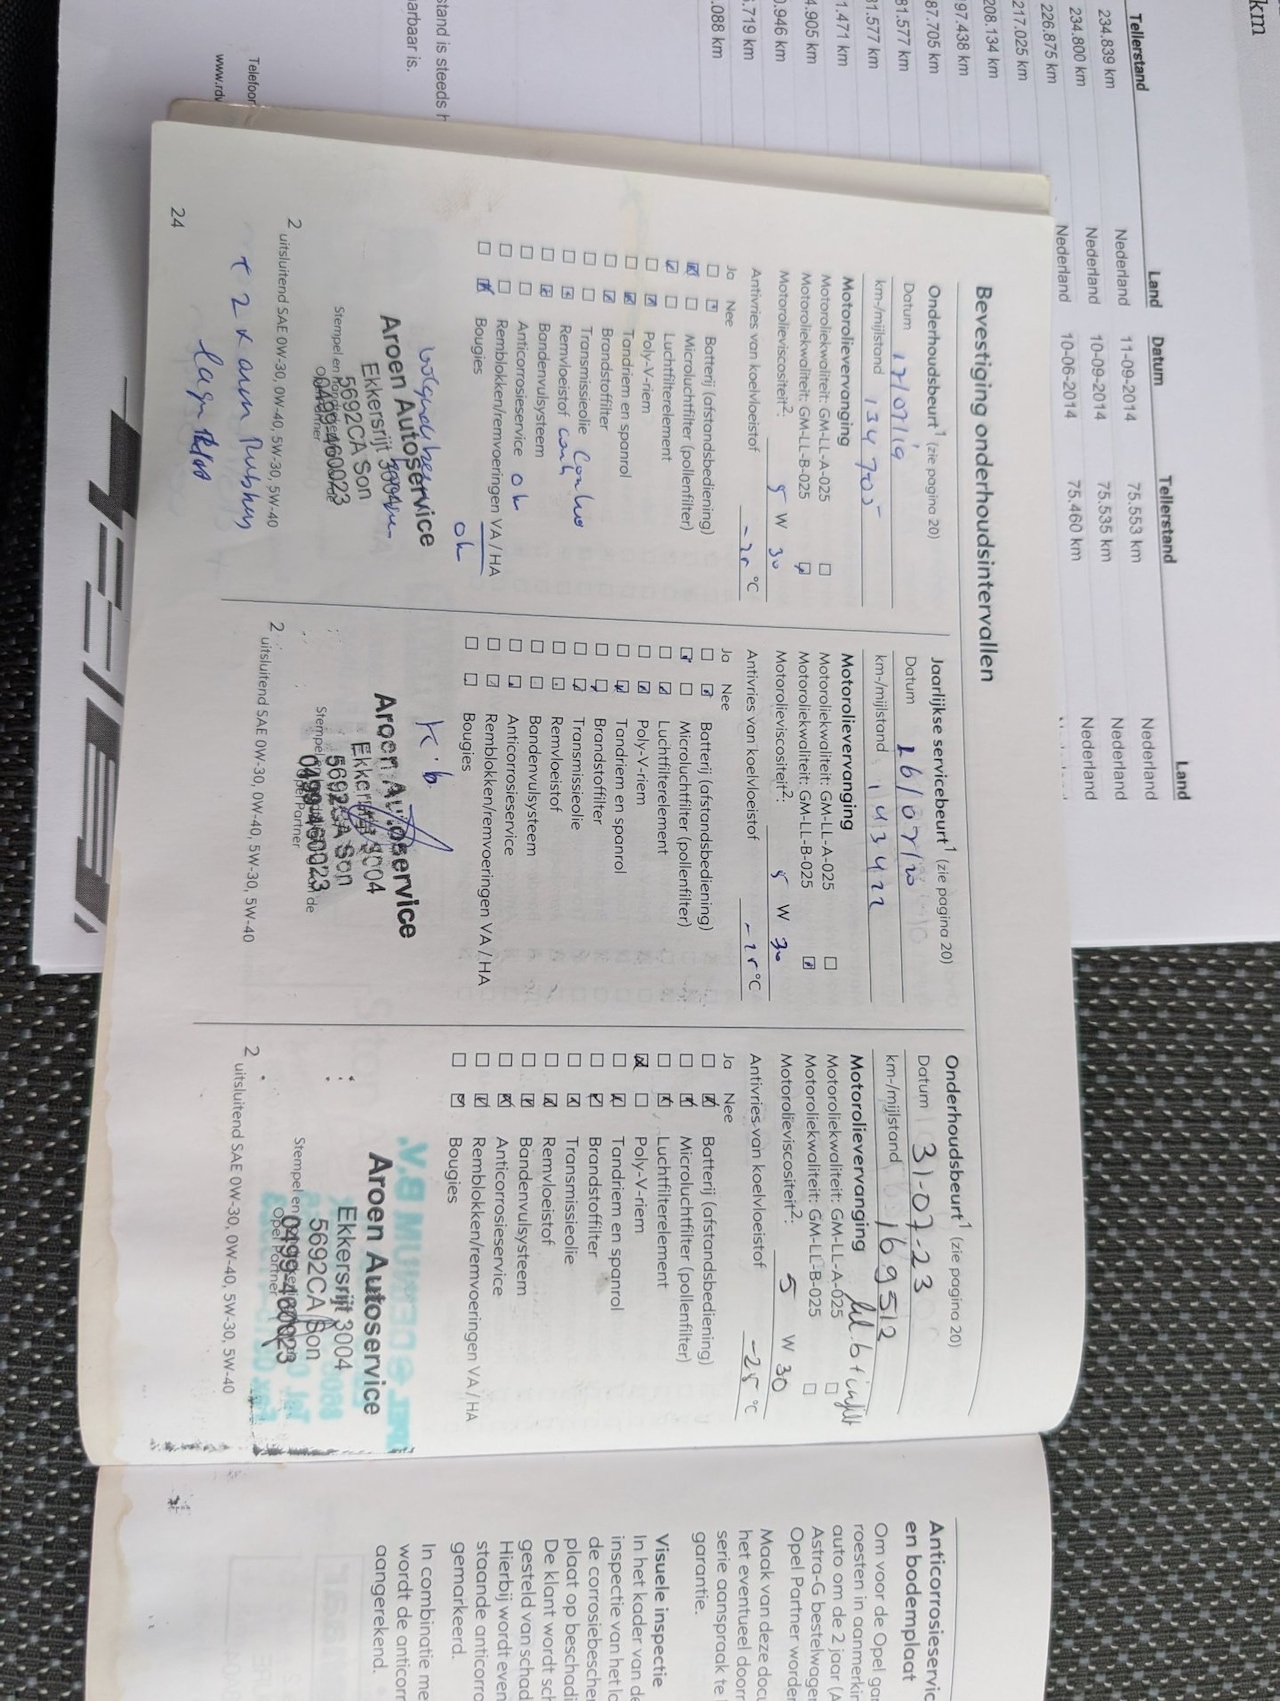 km
Tellerstand
234.839 km
234.800 km
226.875 km
217.025 km
208.134 km
97.438 km
87.705 km
81.577 km
31.577 km
1.471 km
4.905 km
0.946 km
.719 km
.088 km
stand is steeds h
arbaar is.
Telefoor
www.rdv
Land
Nederland
Nederland
Nederland
Datum
11-09-2014
10-09-2014
10-06-2014
Tellerstand
75.553 km
75.535 km
75.460 km
Land
Nederland
Nederland
Nederland
Bevestiging onderhoudsintervallen
Onderhoudsbeurt1 (zie pagina 20)
Datum 17/07/19
km-/mijlstand 134705
Motorolievervanging
Motoroliekwaliteit: GM-LL-A-025
Motoroliekwaliteit: GM-LL-B-025
Motorolieviscositeit2: 5 W 30
Antivries van koelvloeistof °C
Ja Nee
Batterij (afstandsbediening)
Microluchtfilter (pollenfilter)
Luchtfilterelement
Poly-V-riem
Tandriem en spanrol
Brandstoffilter
Transmissieolie
Remvloeistof
Bandenvulsysteem
Anticorrosieservice ok
Remblokken/remvoeringen VA/HA
Bougies ok
Aroen Autoservice
Ekkersrijt 3004
5692CA Son
0499-460023
2 uitsluitend SAE 0W-30, 0W-40, 5W-30, 5W-40
+ 2 x arm rubbers
24
Jaarlijkse servicebeurt1 (zie pagina 20)
Datum 16/07/20
km-/mijlstand 143422
Motorolievervanging
Motoroliekwaliteit: GM-LL-A-025
Motoroliekwaliteit: GM-LL-B-025
Motorolieviscositeit2: 5 W 30
Antivries van koelvloeistof °C
Ja Nee
Batterij (afstandsbediening)
Microluchtfilter (pollenfilter)
Luchtfilterelement
Poly-V-riem
Tandriem en spanrol
Brandstoffilter
Transmissieolie
Remvloeistof
Bandenvulsysteem
Anticorrosieservice
Remblokken/remvoeringen VA/HA
Bougies
Aroen Autoservice
Ekkersrijt 3004
5692CA Son
0499-460023
2 uitsluitend SAE 0W-30, 0W-40, 5W-30, 5W-40
Onderhoudsbeurt1 (zie pagina 20)
Datum 31-07-23
km-/mijlstand 169512
Motorolievervanging
Motoroliekwaliteit: GM-LL-A-025
Motoroliekwaliteit: GM-LL-B-025
Motorolieviscositeit2: 5 W 30
Antivries van koelvloeistof -25 °C
Ja Nee
Batterij (afstandsbediening)
Microluchtfilter (pollenfilter)
Luchtfilterelement
Poly-V-riem
Tandriem en spanrol
Brandstoffilter
Transmissieolie
Remvloeistof
Bandenvulsysteem
Anticorrosieservice
Remblokken/remvoeringen VA/HA
Bougies
Aroen Autoservice
Ekkersrijt 3004
5692CA Son
0499-460023
Stempel en
Opel Partner
2 uitsluitend SAE 0W-30, 0W-40, 5W-30, 5W-40
Anticorrosieservic
en bodemplaat
Om voor de Opel gar
roesten in aanmerkin
auto om de 2 jaar (A
Astra-G bestelwagen
Opel Partner worden
Maak van deze docu
het eventueel door
serie aanspraak te
garantie.
Visuele inspectie
In het kader van de
inspectie van het lo
de corrosiebescher
plaat op beschadi
De klant wordt sch
gesteld van schad
Hierbij wordt even
staande anticorro
gemarkeerd.
In combinatie me
wordt de anticorr
aangerekend.